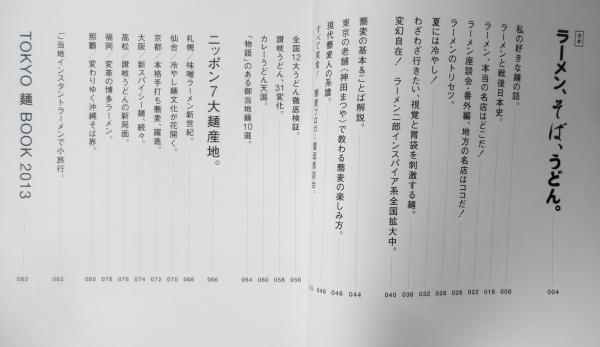 ラーメン、そば、うどん。
004
私の好きな麺の話。
006
ラーメンと戦後日本史。
018
ラーメン、本当の名店はどこだ！
020
ラーメン座談会・番外編、地方の名店はココだ！
026
ラーメンのトリセツ。
028
夏には冷やし！
032
わざわざ行きたい、視覚と胃袋を刺激する麺。
036
変幻自在！ ラーメン二郎インスパイア系全国拡大中。
040
蕎麦の基本＆ことば解説。
044
東京の老舗〈神田まつや〉で教わる蕎麦の楽しみ方。
046
現代蕎麦人の系譜。
048
すべて実食！ 蕎麦ブロガー覆面座談会。
全国12大うどん徹底検証。
056
讃岐うどん、31変化。
058
カレーうどん天国。
060
「物語」のある御当地麺10選。
064
ニッポン7大麺産地。
066
札幌／味噌ラーメン新世紀。
068
仙台／冷やし麺文化が花開く。
070
京都／本格手打ち蕎麦、躍進。
072
大阪／新スパイシー麺、続々。
074
高松／讃岐うどんの新局面。
076
福岡／変革の博多ラーメン。
078
那覇／変わりゆく沖縄そば界。
080
ご当地インスタントラーメンで小旅行。
082
TOKYO 麺 BOOK 2013
083